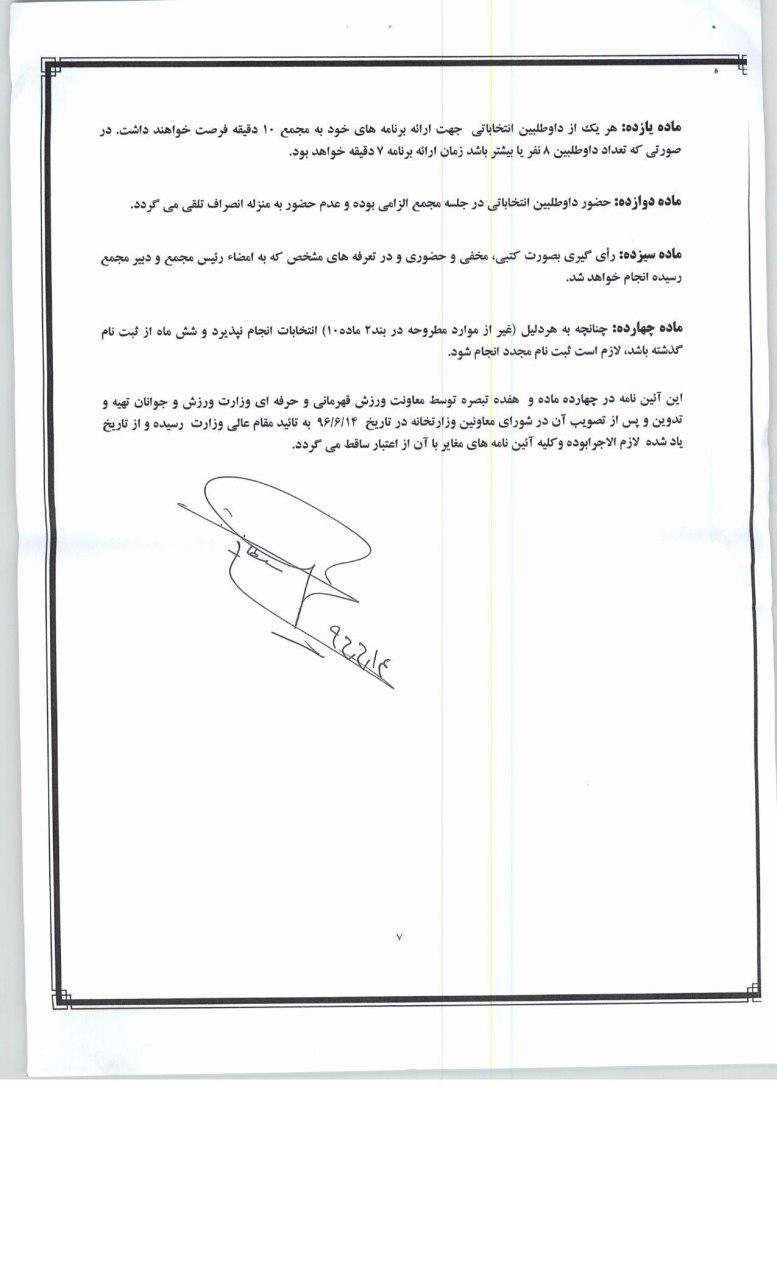 ماده یازده: هر یک از داوطلبین انتخاباتی جهت ارائه برنامه های خود به مجمع ۱۰ دقیقه فرصت خواهند داشت. در
صورتی که تعداد داوطلبین ۸ نفر یا بیشتر باشد زمان ارائه برنامه ۷ دقیقه خواهد بود.
ماده دوازده: حضور داوطلبین انتخاباتی در جلسه مجمع الزامی بوده و عدم حضور به منزله انصراف تلقی می گردد.
ماده سیزده: رأی گیری بصورت کتبی، مخفی و حضوری و در تعرفه های مشخص که به امضاء رئیس مجمع و دبیر مجمع
رسیده انجام خواهد شد.
ماده چهارده: چنانچه به هردلیل (غیر از موارد مطروحه در بند۲ ماده۱۰) انتخابات انجام نپذیرد و شش ماه از ثبت نام
گذشته باشد، لازم است ثبت نام مجدد انجام شود.
این آئین نامه در چهارده ماده و هفده تبصره توسط معاونت ورزش قهرمانی و حرفه ای وزارت ورزش و جوانان تهیه و
تدوین و پس از تصویب آن در شورای معاونین وزارتخانه در تاریخ ۹۶/۶/۱۴ به تائید مقام عالی وزارت رسیده و از تاریخ
یاد شده لازم الاجرابوده وکلیه آئین نامه های مغایر با آن از اعتبار ساقط می گردد.
۷